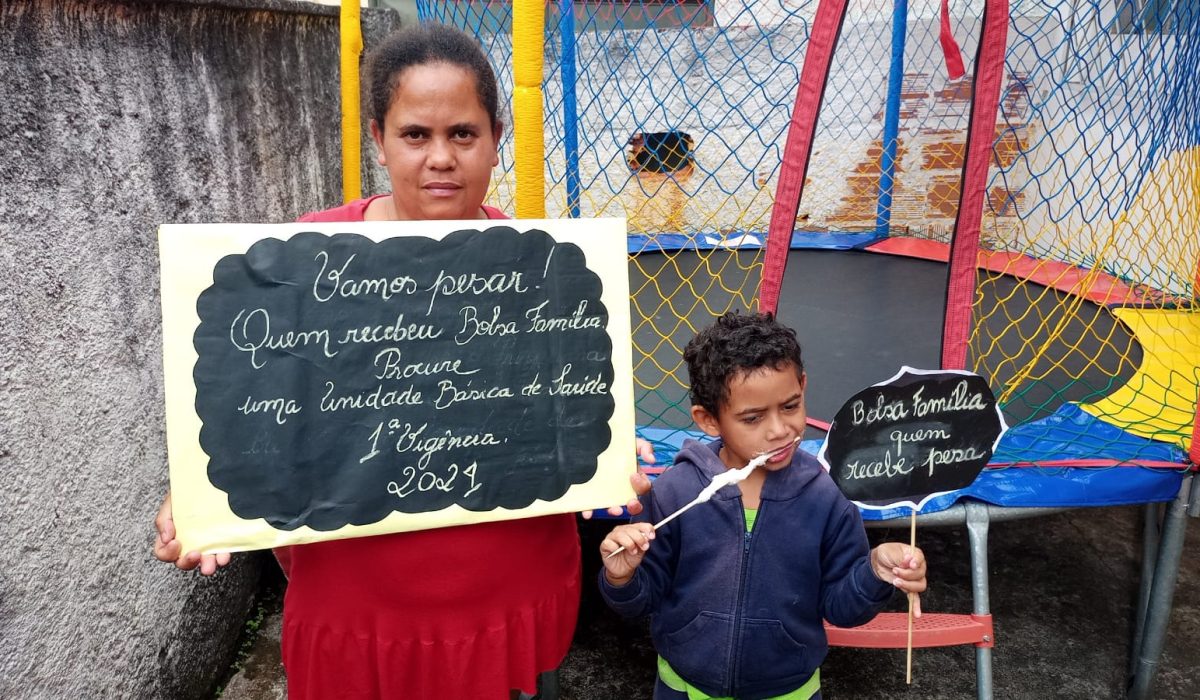 Vamos pesar!
Quem recebeu Bolsa Família.
Procure
uma Unidade Básica de Saúde
1ª Vigência.
2021
Bolsa Família
quem
recebe pesa